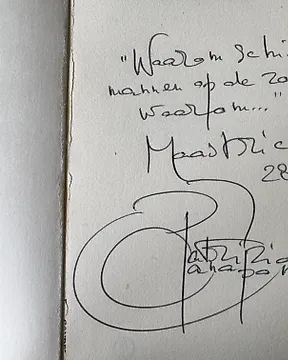 "Waarom schi
mannen op de zo
waarom..."
Maastric
28
Patrizio
Canapon